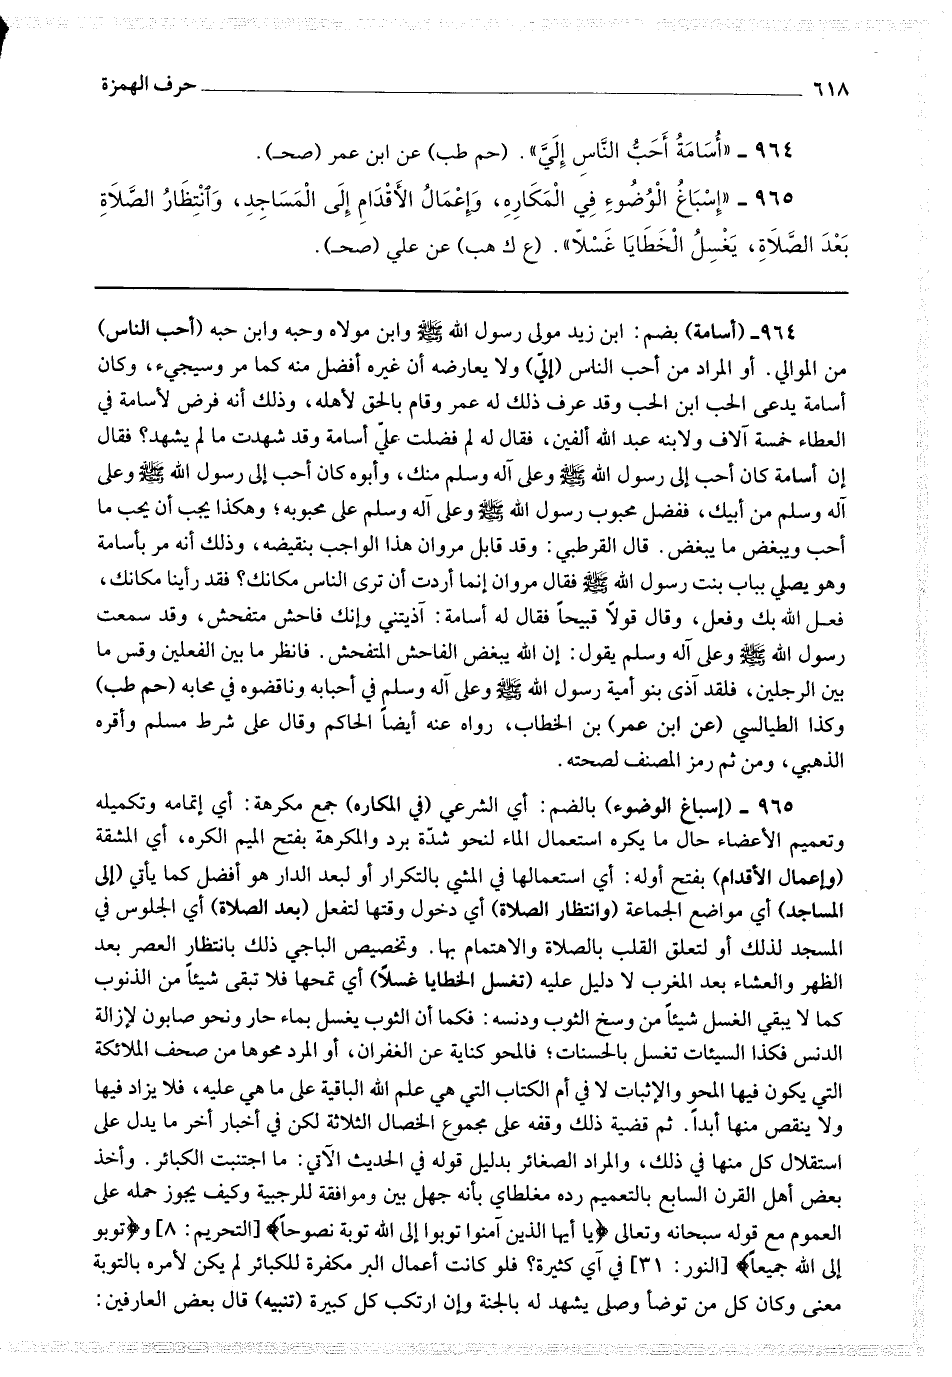 ٦١٨ حرف الهمزة
٩٦٤ ـ «أُسَامَةُ أَحَبُّ النَّاسِ إِلَيَّ». (حم طب) عن ابن عمر (صحـ).
٩٦٥ ـ «إِسْبَاغُ الْوُضُوءِ فِي الْمَكَارِهِ، وَإِعْمَالُ الأَقْدَامِ إِلَى الْمَسَاجِدِ، وَٱنْتِظَارُ الصَّلَاةِ
بَعْدَ الصَّلَاةِ، يَغْسِلُ الْخَطَايَا غَسْلًا». (ع ك هب) عن علي (صحـ).
٩٦٤ـ (أسامة) بضم: ابن زيد مولى رسول الله ﷺ وابن مولاه وحبه وابن حبه (أحب الناس)
من الموالي. أو المراد من أحب الناس (إليّ) ولا يعارضه أن غيره أفضل منه كما مر وسيجيء، وكان
أسامة يدعى الحب ابن الحب وقد عرف ذلك له عمر وقام بالحق لأهله، وذلك أنه فرض لأسامة في
العطاء خمسة آلاف ولابنه عبد الله ألفين، فقال له لم فضلت عليّ أسامة وقد شهدت ما لم يشهد؟ فقال
إن أسامة كان أحب إلى رسول الله ﷺ وعلى آله وسلم منك، وأبوه كان أحب إلى رسول الله ﷺ وعلى
آله وسلم من أبيك، ففضل محبوب رسول الله ﷺ وعلى آله وسلم على محبوبه؛ وهكذا يجب أن يحب ما
أحب ويبغض ما يبغض. قال القرطبي: وقد قابل مروان هذا الواجب بنقيضه، وذلك أنه مر بأسامة
وهو يصلي بباب بنت رسول الله ﷺ فقال مروان إنما أردت أن ترى الناس مكانك؟ فقد رأينا مكانك،
فعـل الله بك وفعل، وقال قولًا قبيحاً فقال له أسامة: آذيتني وإنك فاحش متفحش، وقد سمعت
رسول الله ﷺ وعلى آله وسلم يقول: إن الله يبغض الفاحش المتفحش. فانظر ما بين الفعلين وقس ما
بين الرجلين، فلقد آذى بنو أمية رسول الله ﷺ وعلى آله وسلم في أحبابه وناقضوه في محابه (حم طب)
وكذا الطيالسي (عن ابن عمر) بن الخطاب، رواه عنه أيضاً الحاكم وقال على شرط مسلم وأقره
الذهبي، ومن ثم رمز المصنف لصحته.
٩٦٥ ـ (إسباغ الوضوء) بالضم: أي الشرعي (في المكاره) جمع مكرهة: أي إتمامه وتكميله
وتعميم الأعضاء حال ما يكره استعمال الماء لنحو شدّة برد والمكرهة بفتح الميم الكره، أي المشقة
(وإعمال الأقدام) بفتح أوله: أي استعمالها في المشي بالتكرار أو لبعد الدار هو أفضل كما يأتي (إلى
المساجد) أي مواضع الجماعة (وانتظار الصلاة) أي دخول وقتها لتفعل (بعد الصلاة) أي الجلوس في
المسجد لذلك أو لتعلق القلب بالصلاة والاهتمام بها. وتخصيص الباجي ذلك بانتظار العصر بعد
الظهر والعشاء بعد المغرب لا دليل عليه (تغسل الخطايا غسلًا) أي تمحها فلا تبقى شيئاً من الذنوب
كما لا يبقي الغسل شيئاً من وسخ الثوب ودنسه: فكما أن الثوب يغسل بماء حار ونحو صابون لإزالة
الدنس فكذا السيئات تغسل بالحسنات؛ فالمحو كناية عن الغفران، أو المرد محوها من صحف الملائكة
التي يكون فيها المحو والإثبات لا في أم الكتاب التي هي علم الله الباقية على ما هي عليه، فلا يزاد فيها
ولا ينقص منها أبداً. ثم قضية ذلك وقفه على مجموع الخصال الثلاثة لكن في أخبار أخر ما يدل على
استقلال كل منها في ذلك، والمراد الصغائر بدليل قوله في الحديث الآتي: ما اجتنبت الكبائر. وأخذ
بعض أهل القرن السابع بالتعميم رده مغلطاي بأنه جهل بين وموافقة للرجبية وكيف يجوز حمله على
العموم مع قوله سبحانه وتعالى ﴿يا أيها الذين آمنوا توبوا إلى الله توبة نصوحاً﴾ [التحريم: ٨] و﴿توبو
إلى الله جميعاً﴾ [النور: ٣١] في آي كثيرة؟ فلو كانت أعمال البر مكفرة للكبائر لم يكن لأمره بالتوبة
معنى وكان كل من توضأ وصلى يشهد له بالجنة وإن ارتكب كل كبيرة (تنبيه) قال بعض العارفين: